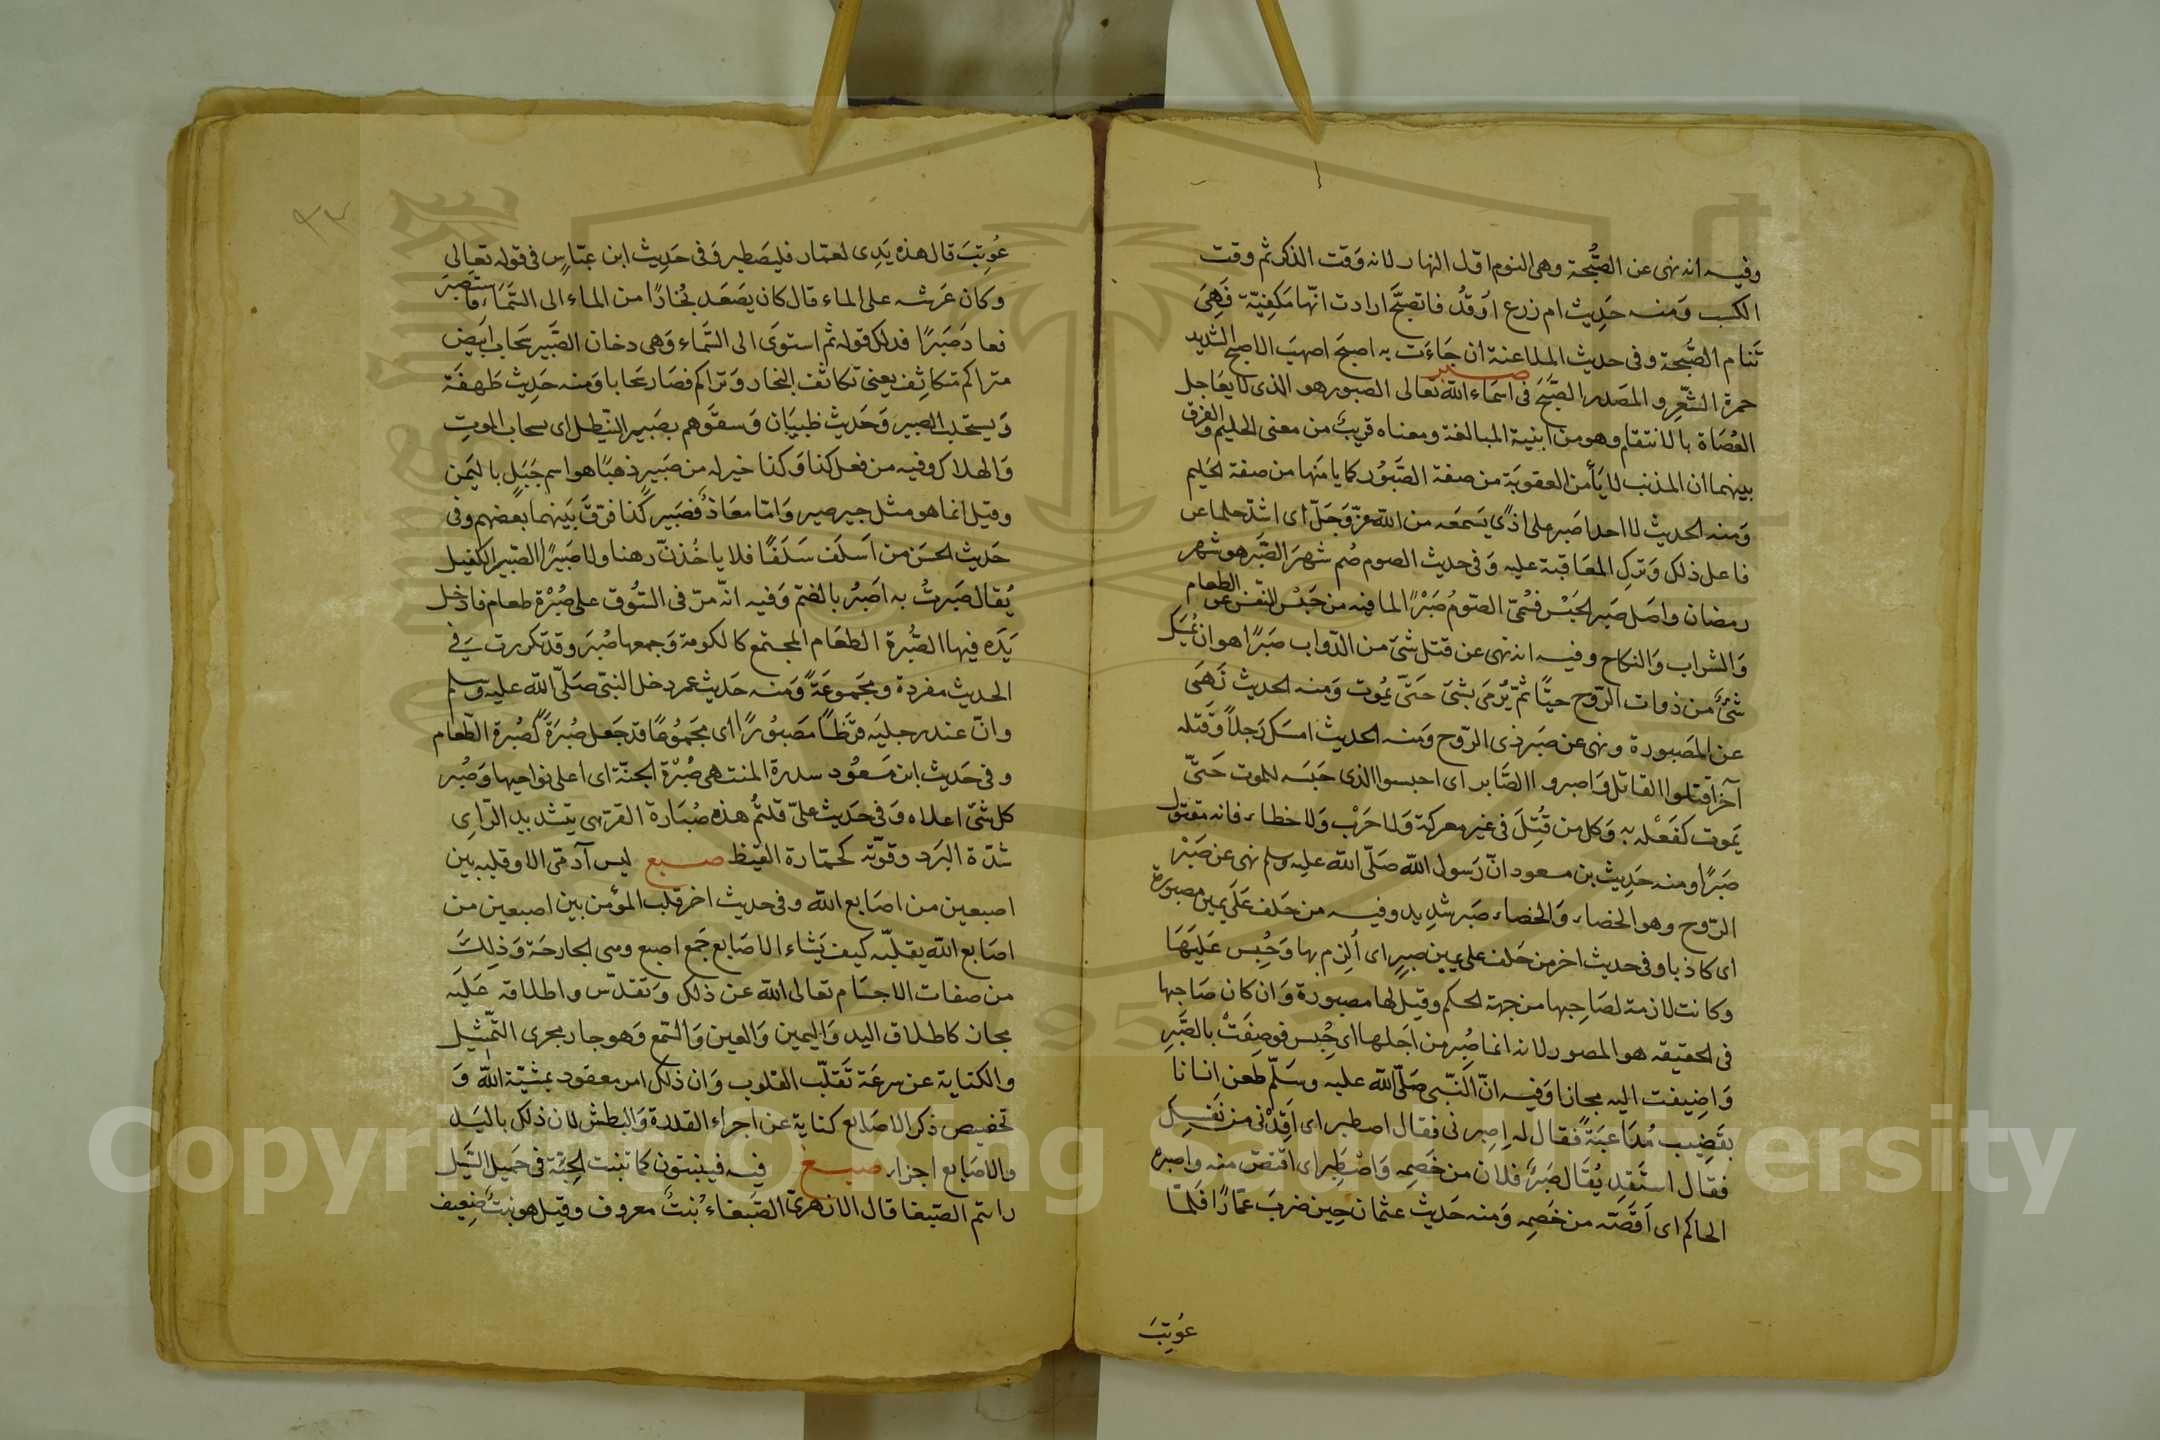 وفيه انه نهى عن الصُّبحة وهى النوم اوّل النهار لانه وَقت الذكر ثم وقت
الكسب وَمنه حَدِيث ام زرع ارْقدُ فاتصبَّح ارادت انّها مَكفِيّة فَهِىَ
تَنام الصُّبحة وفى حديث الملاعنة ان جَاءَت به اصبحَ اصهبَ الاصبح الشديد
حمرة الشَّعرِ والمصَدر الصَّبَحَ صبر فى اسمَاء الله تعالى الصبور هو الذى لا يعَاجل
العُصَاة بالانتقام وهو من ابنية المبالغة ومعناه قريبٌ من معنى الحليم والفرق
بينهما ان المذنب لا يَأمن العقوبَة من صفة الصَّبوُر كما يامَنها من صفة الحَليم
وَمنه الحديث لا احد اصَبر على اذًى يَسمَعه من الله عزّ وَجَلّ اى اشدّ حلما عن
فاعل ذلك وَتركِ المعَاقبة عليه وَفى حديث الصوم صُم شهرَ الصَّبَر هو شهر
رمضان واصَل صَبر الحَبْس فسُمّىَ الصّومُ صَبْرًا لما فيه من حَبْس النفس عن الطعام
وَالشراب وَالنكاح وفيه انه نهى عن قتل شىَ من الدّواب صَبرًا هو ان يُمسَك
شئٌ من ذوات الرّوح حيًّا ثمّ يُرمَى بشىَ حَتىّ يمُوت وَمنه الحديث نَهَى
عن المَصبورة ونهى عن صَبر ذى الرّوح وَمنه الحديث امسَك رَجلاً وَقتله
آخر اقتلوا القاتل وَاصبروا الصَّابر اى احبسوا الذى حَبَسه للموت حَتىّ
يَموت كفَعْله به وَكل من قُتِلَ فى غير معركة وَلا حَرْب وَلا خطاء فانه مقتول
صَبرًا ومنه حَدِيث بن مسعود انّ رَسول الله صَلّى الله عليه وسلم نهى عن صَبْر
الرّوح وهو الخصاء وَالخصاء صَبر شدِيد وفيه من حَلف عَلَى يمين مصبورة
اى كاذبا وفى حديث اخر من حَلف على يمين صبرٍ اى اُلزم بها وَحُبِس عَليَهَا
وكانت لازمة لصَاحِبها من جهة الحكم وقيل لها مصبورة وَان كان صَاحِبها
فى الحقيقه هو المصبور لانه انما صُبِر من اَجَلها اى حُبِس فوصِفَتْ بالصَّبر
وَاضِيفت اليه مجازا وَفيه انّ النَّبى صَلّى الله عليه وسَلّم طعن انسانا
بقَضِيب مُدَاعَبَةً فقال له اصِبر نى فقال اصطبر اى اَقِدْنى من نَفسِك
فقال استَقِد يُقَال صَبَرَ فلان من خَصِمه وَاصْطَبَر اى اقتصّ منه واصبره
الحاكم اى اَقَصّه من خَصِمه وَمنه حَديث عثمان حِين ضربَ عمّارًا فَلمّا
عُوتِبَ
عُوتِبَ قال هذه يَدِى لعمّار فليصَطبر وَفى حَدِيث ابن عبّاسٍ فى قوله تعالى
وكان عَرشه على الماء قال كان يصَعَد بُخارًا من الماء الى السَّمَاء فاستصبَرَ
فعاد صَبَرًا فذلك قوله ثم استوَى الى السَّماء وَهى دخان الصَّبير سَحاب ابَيض
متراكم متكاثِف يعنى تكاثف البخار وَتراكم فصَار سَحابا وَمنه حَدِيث طَهفَة
وَيستحلب الصبير وَحَديث ظبيَان وَسقَوهم بصَبير النّيطل اى سحاب الموتِ
وَالهلاك وفيه من فعل كذا وَكذا خير له من صَبيرٍ ذهبًا هو اسم جَبَلٍ باليَمن
وقيل انما هو مثل جبر صير وَامّا معَاذ فصَبير كذا فرّقَ بَينهما بعضهم وفى
حَديث الحسَن من اَسلَف سَلَفًا فلا ياخُذنّ رهنا ولا صَبيرًا الصّبير الكفيل
يُقال صَبَرتُ به اصَبُر بالضمّ وَفيه انّه مرّ فى السّوُق على صُبْرة طعام فادَخل
يَدَه فيها الصُّبرة الطعَام المجتمع كالكومة وَجمعها صُبرَ وقد تكررت فى
الحديث مفردة ومجَموعَةً وَمنه حَديث عمر دخل النبىّ صَلّى الله عليه وسلم
وانّ عند رجليَه قَرَظًا مَصبوُرًا اى مجَموُعًا قد جَعل صُبرَةً كصُبرة الطّعام
وفى حَديث ابن مَسعُود سدرة المنتهى صُبْرة الجنّة اى اعلى نواحيها وَصُبر
كل شىّ اعلاه وَفى حَديث علىّ قلتُم هذه صُبَارة القرّهى بتشديد الرّاى
شدّة البَرد وقوّته كحَمّارة القيَظ صبع ليس آدمىّ الا وقلبه بين
اصبعين من اصَابع الله وفى حديث اخر قلب المؤمن بين اصبعين من
اصَابع الله يقلبّه كيف يَشاء الاصَابع جَمع اصبع وهى الجارحَة وَذلِكَ
من صفات الاجسَام تعالى الله عن ذلك وَتقدّس واطلاقه عَليَه
مجاز كاطلاق اليد وَاليمين وَالعين وَالسّمع وَهو جار مجرى التّمثيل
والكناية عن سرعَة تَقلّب القلوب وَان ذلك امر معقود بمشيّة الله وَ
تخصيص ذكر الاصَابع كناية عن اجراء القدرة وَالبَطش لان ذلك باليَد
والاصَابع اجزاء صبغ فيه فينبتون كما تنبت الحِبّة فى حَميل السّيل
رايتم الصّبغا قال الازهرىّ الصَّبغاء نُبتٌ معروف وقيل هو نبتٌ ضِعيف
٩٣
Copyright © King Saud University
1957